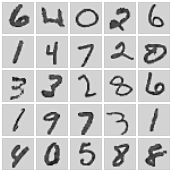 6 4 0 2 6
1 4 7 2 0
3 3 2 8 6
1 9 7 3 1
4 0 5 8 8